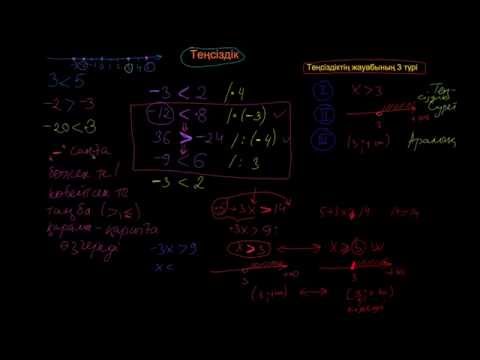 Теңсіздік
Теңсіздіктің жауабының 3 түрі
3 < 5
-2 > -3
-20 < -3
"-" санға
бөлсек те /
көбейтсек те
таңба (>, <)
қарама-қарсыға
өзгереді
-3 < 2 /·4
-12 < 8 /·(-3)
36 > -24 /:(-4)
-9 < 6 /:3
-3 < 2
-3x > 9
x <
+3x > 14
+3x > 9
x > 3
3
+∞
(3; +∞)
5+3x ⩾ 14
14 = 14
x ⩾ 3
3
+∞
[3; +∞)
I x > 3 Тең-
сіздік
II 3 +∞ Сурет
III (3; +∞) Аралық